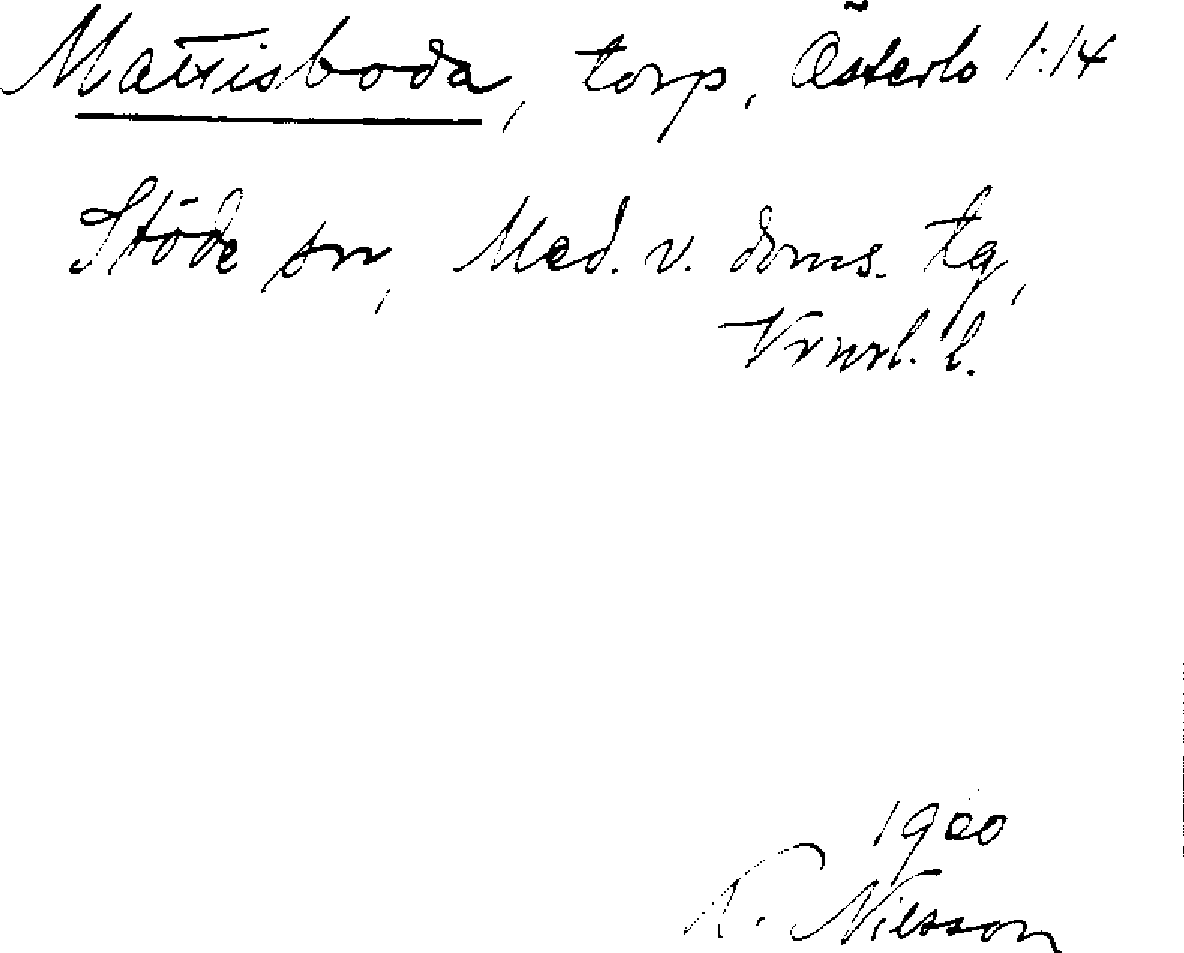 Mattisboda, torp, Österlo 1:14
Stöde sn, Med. v. doms. tg,
Vrnrl. l.
1960
K. Nilsson